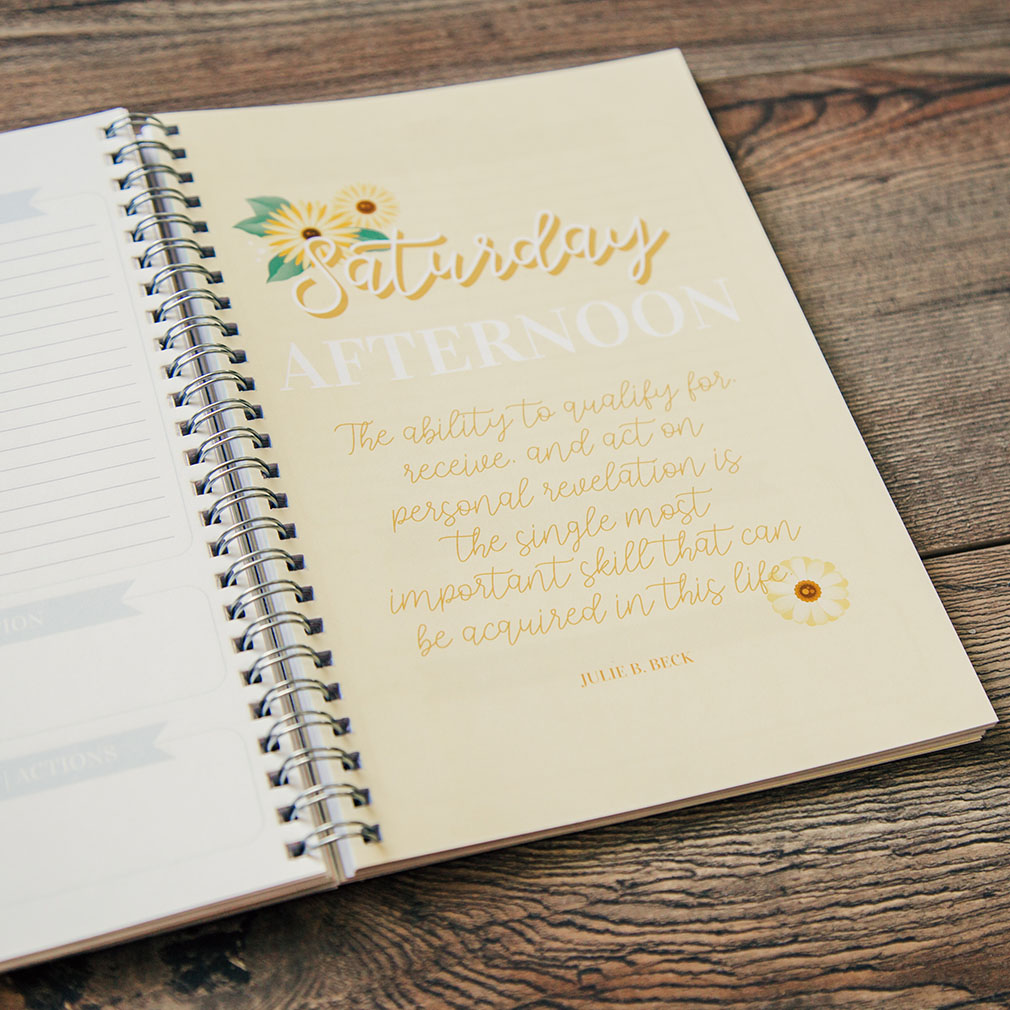 Saturday
AFTERNOON
The ability to qualify for,
receive, and act on
personal revelation is
the single most
important skill that can
be acquired in this life.
JULIE B. BECK
ACTIONS